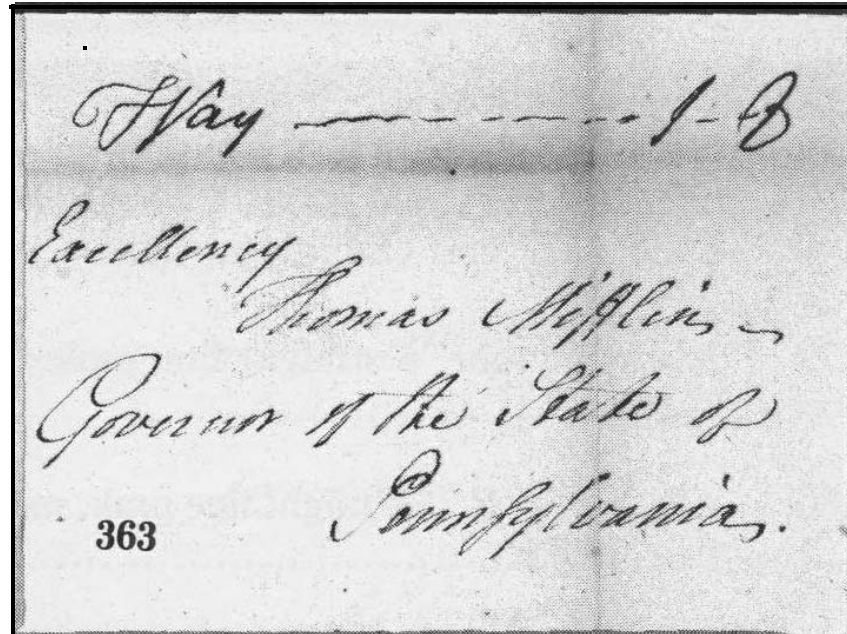 Way - - - - - - - 1 - 8
Excellency
Thomas Mifflin
Governor of the State of
Pennsylvania.
363